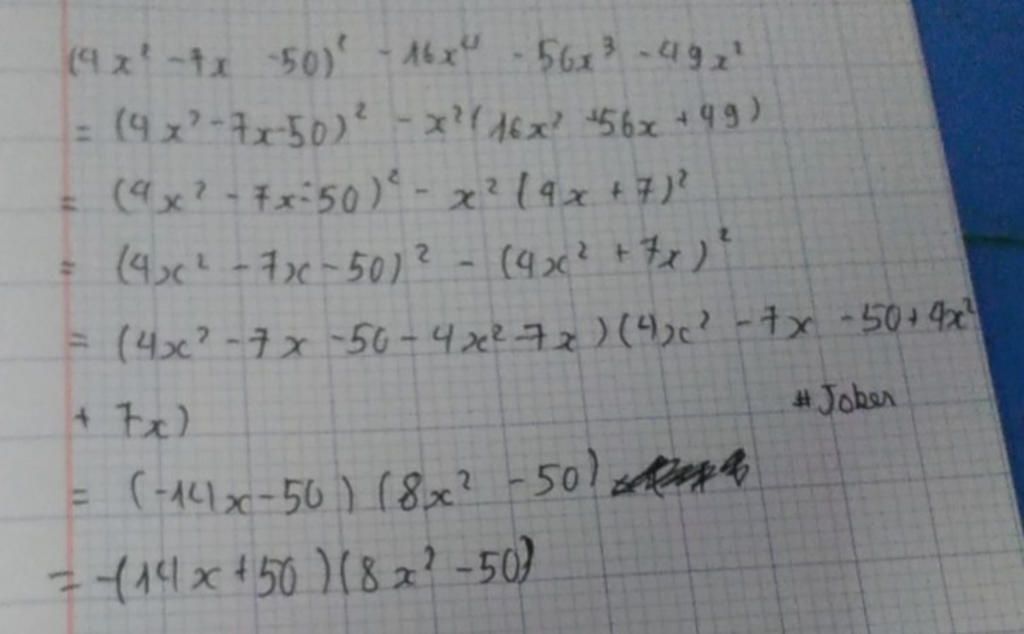 (4x² - 7x - 50)² - 16x⁴ - 56x³ - 49x²
= (4x² - 7x - 50)² - x²(16x² + 56x + 49)
= (4x² - 7x - 50)² - x²(4x + 7)²
= (4x² - 7x - 50)² - (4x² + 7x)²
= (4x² - 7x - 50 - 4x² - 7x)(4x² - 7x - 50 + 4x²
+ 7x)
#Joker
= (-14x - 50)(8x² - 50)
= -(14x + 50)(8x² - 50)